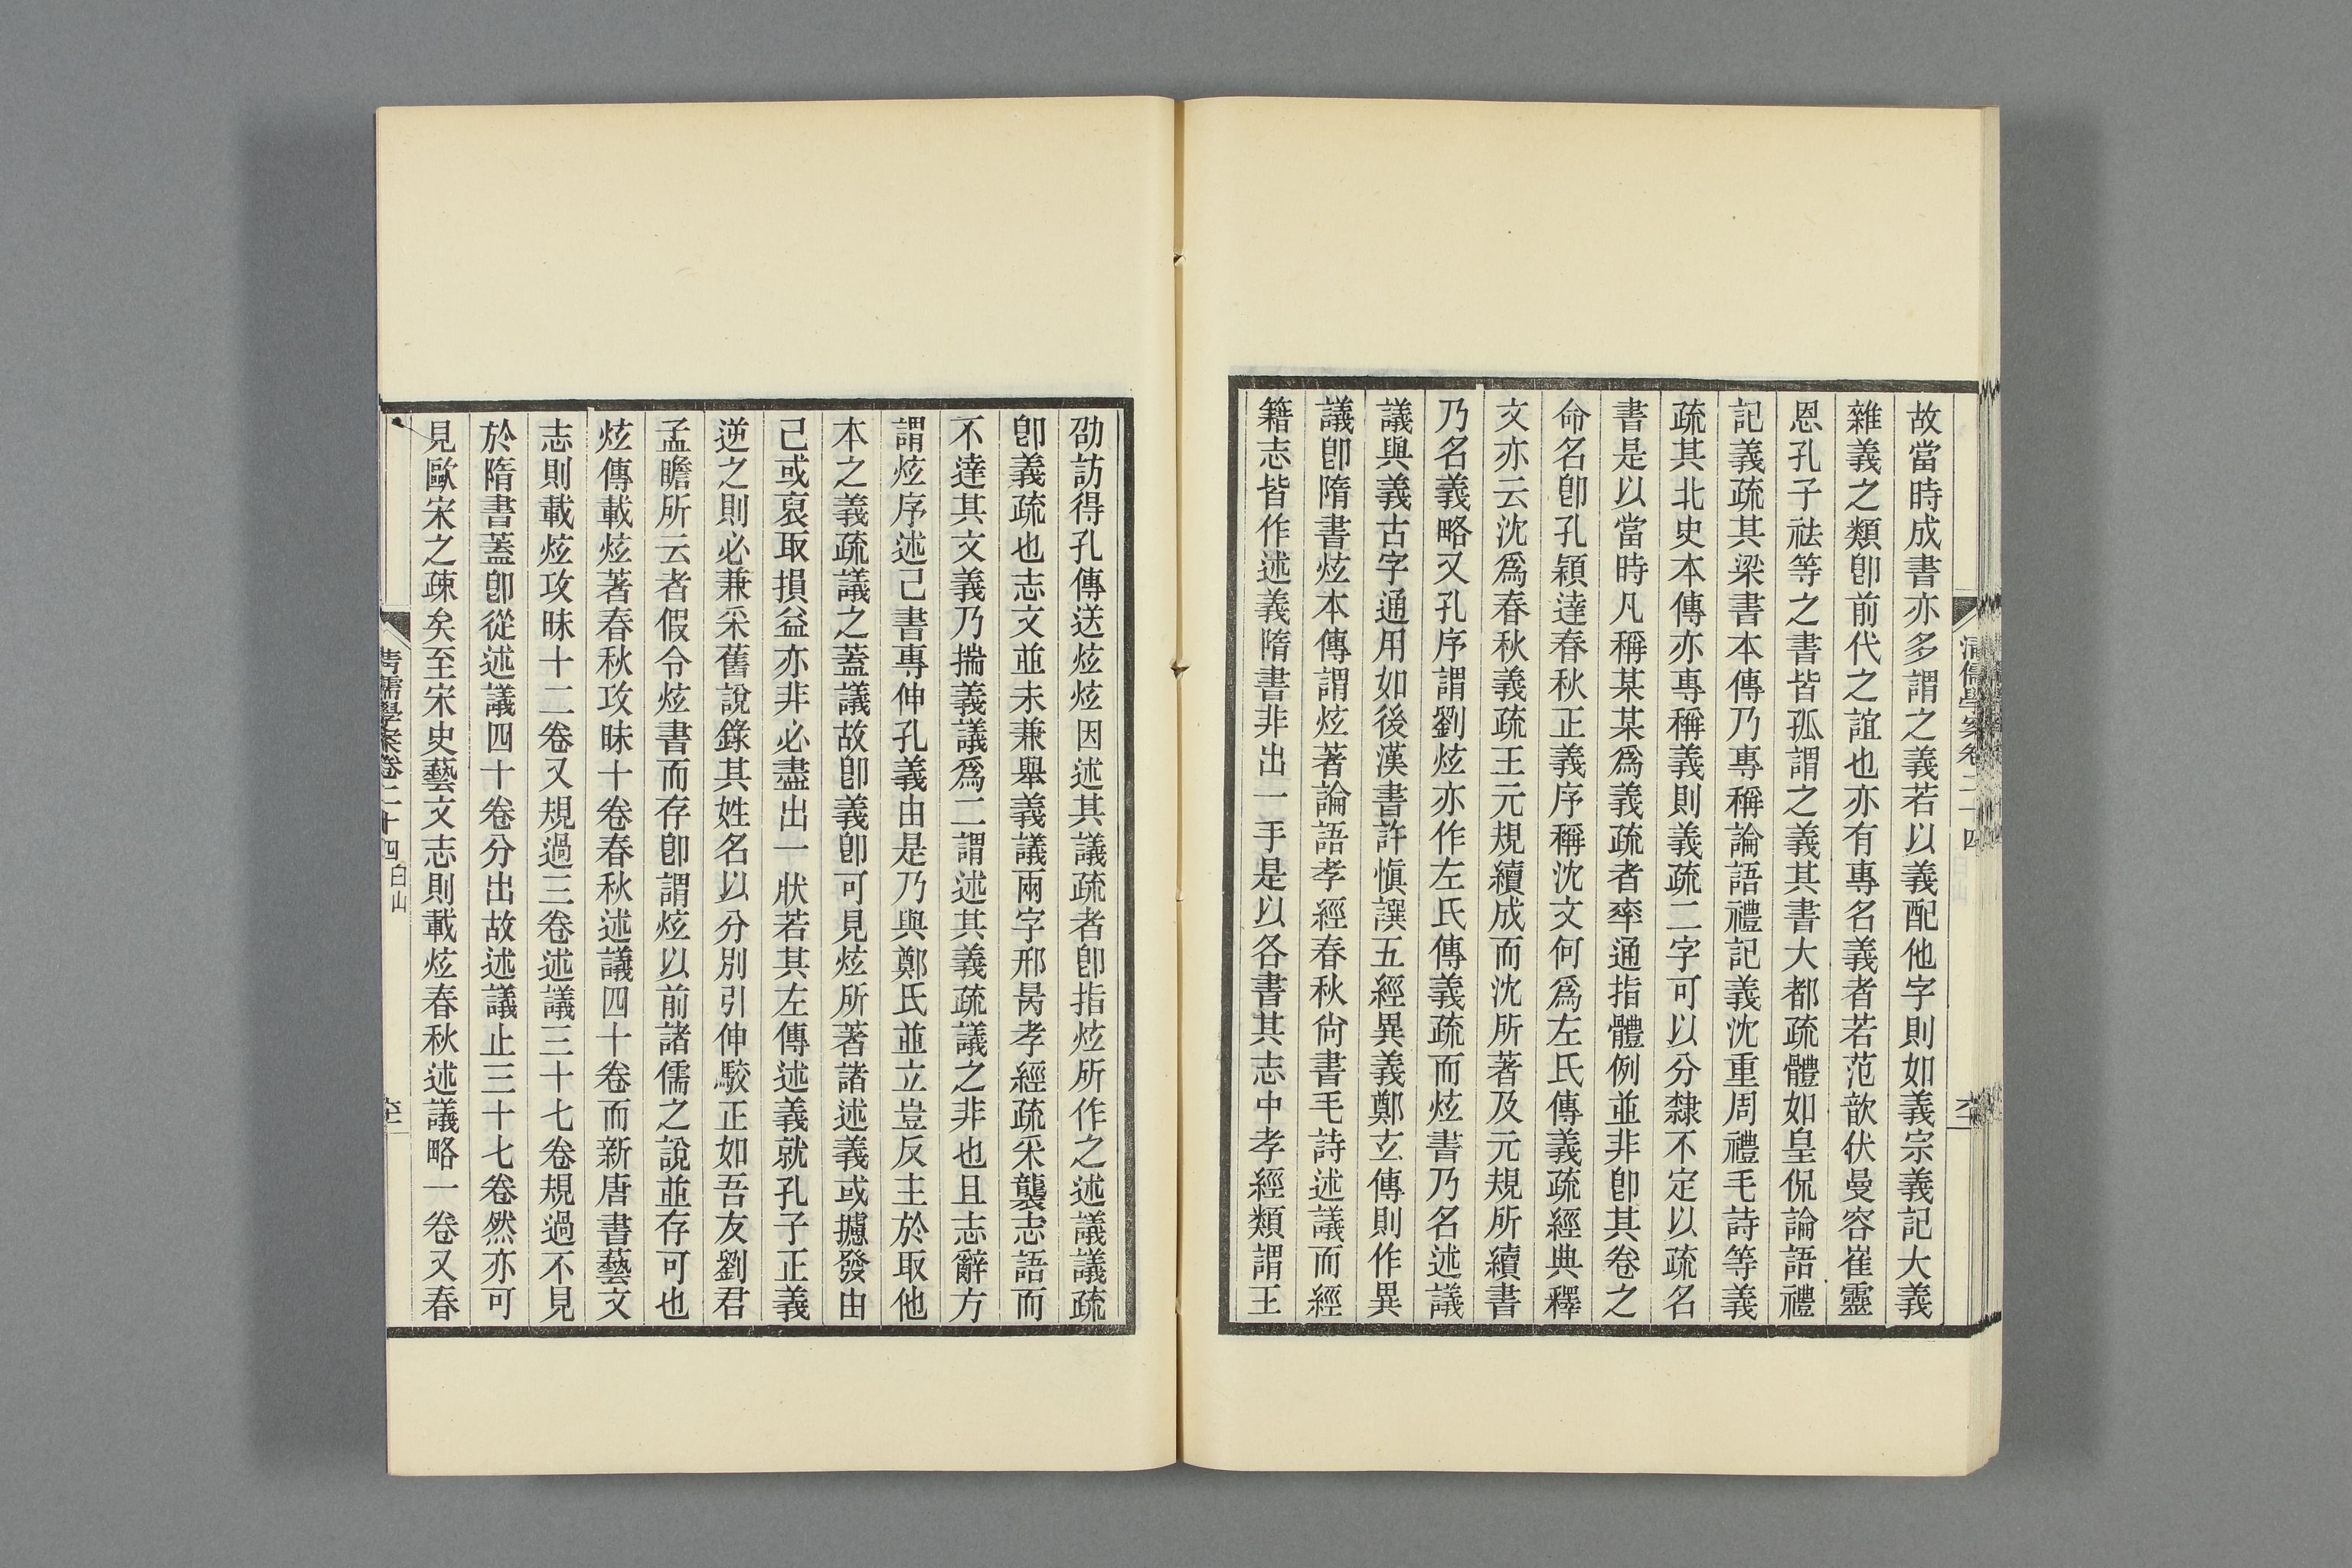 故當時成書亦多謂之義若以義配他字則如義宗義記大義
雜義之類卽前代之誼也亦有專名義者若范歆伏曼容崔靈
恩孔子祛等之書皆孤謂之義其書大都疏體如皇侃論語禮
記義疏其梁書本傳乃專稱論語禮記義沈重周禮毛詩等義
疏其北史本傳亦專稱義則義疏二字可以分隸不定以疏名
書是以當時凡稱某某爲義疏者率通指體例並非卽其卷之
命名卽孔穎達春秋正義序稱沈文何爲左氏傳義疏經典釋
文亦云沈爲春秋義疏王元規續成而沈所著及元規所續書
乃名義略又孔序謂劉炫亦作左氏傳義疏而炫書乃名述議
議與義古字通用如後漢書許愼譔五經異義鄭玄傳則作異
議卽隋書炫本傳謂炫著論語孝經春秋尙書毛詩述議而經
籍志皆作述義隋書非出一手是以各書其志中孝經類謂王
劭訪得孔傳送炫炫因述其議疏者卽指炫所作之述議議疏
卽義疏也志文並未兼舉義議兩字邢昺孝經疏采襲志語而
不達其文義乃揣義議爲二謂述其義疏議之非也且志辭方
謂炫序述己書專伸孔義由是乃與鄭氏並立豈反主於取他
本之義疏議之蓋議故卽義卽可見炫所著諸述義或攄發由
己或裒取損益亦非必盡出一狀若其左傳述義就孔子正義
逆之則必兼采舊說錄其姓名以分別引伸駮正如吾友劉君
孟瞻所云者假令炫書而存卽謂炫以前諸儒之說並存可也
炫傳載炫著春秋攻昧十卷春秋述議四十卷而新唐書藝文
志則載炫攻昧十二卷又規過三卷述議三十七卷規過不見
於隋書蓋卽從述議四十卷分出故述議止三十七卷然亦可
見歐宋之疎矣至宋史藝文志則載炫春秋述議略一卷又春
清儒學案卷二十四 白山